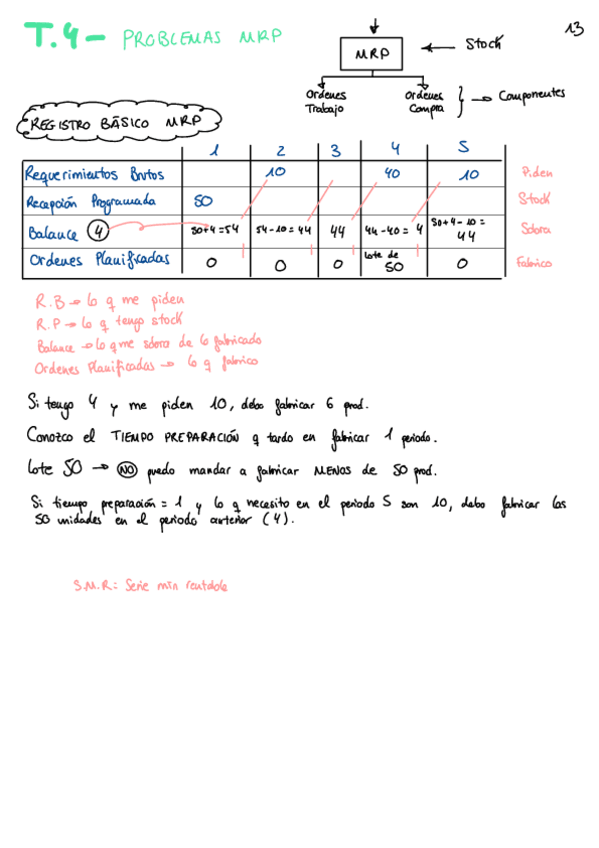 T.4 - PROBLEMAS MRP
13
MRP
Stock
Ordenes Trabajo
Ordenes Compra
Componentes
REGISTRO BÁSICO MRP
1 2 3 4 5
Requerimientos Brutos 10 40 10 Piden
Recepción Programada 50 Stock
Balance 4 50+4=54 54-10=44 44 44-40=4 50+4-10=44 Sobra
Ordenes Planificadas 0 0 0 lote de 50 0 Fabrico
R.B → lo q me piden
R.P → lo q tengo stock
Balance → lo q me sobra de lo fabricado
Ordenes Planificadas → lo q fabrico
Si tengo 4 y me piden 10, debo fabricar 6 prod.
Conozco el TIEMPO PREPARACIÓN q tardo en fabricar 1 periodo.
Lote 50 → NO puedo mandar a fabricar MENOS de 50 prod.
Si tiempo preparación = 1 y lo q necesito en el periodo 5 son 10, debo fabricar las
50 unidades en el periodo anterior (4).
S.M.R = Serie min rentable